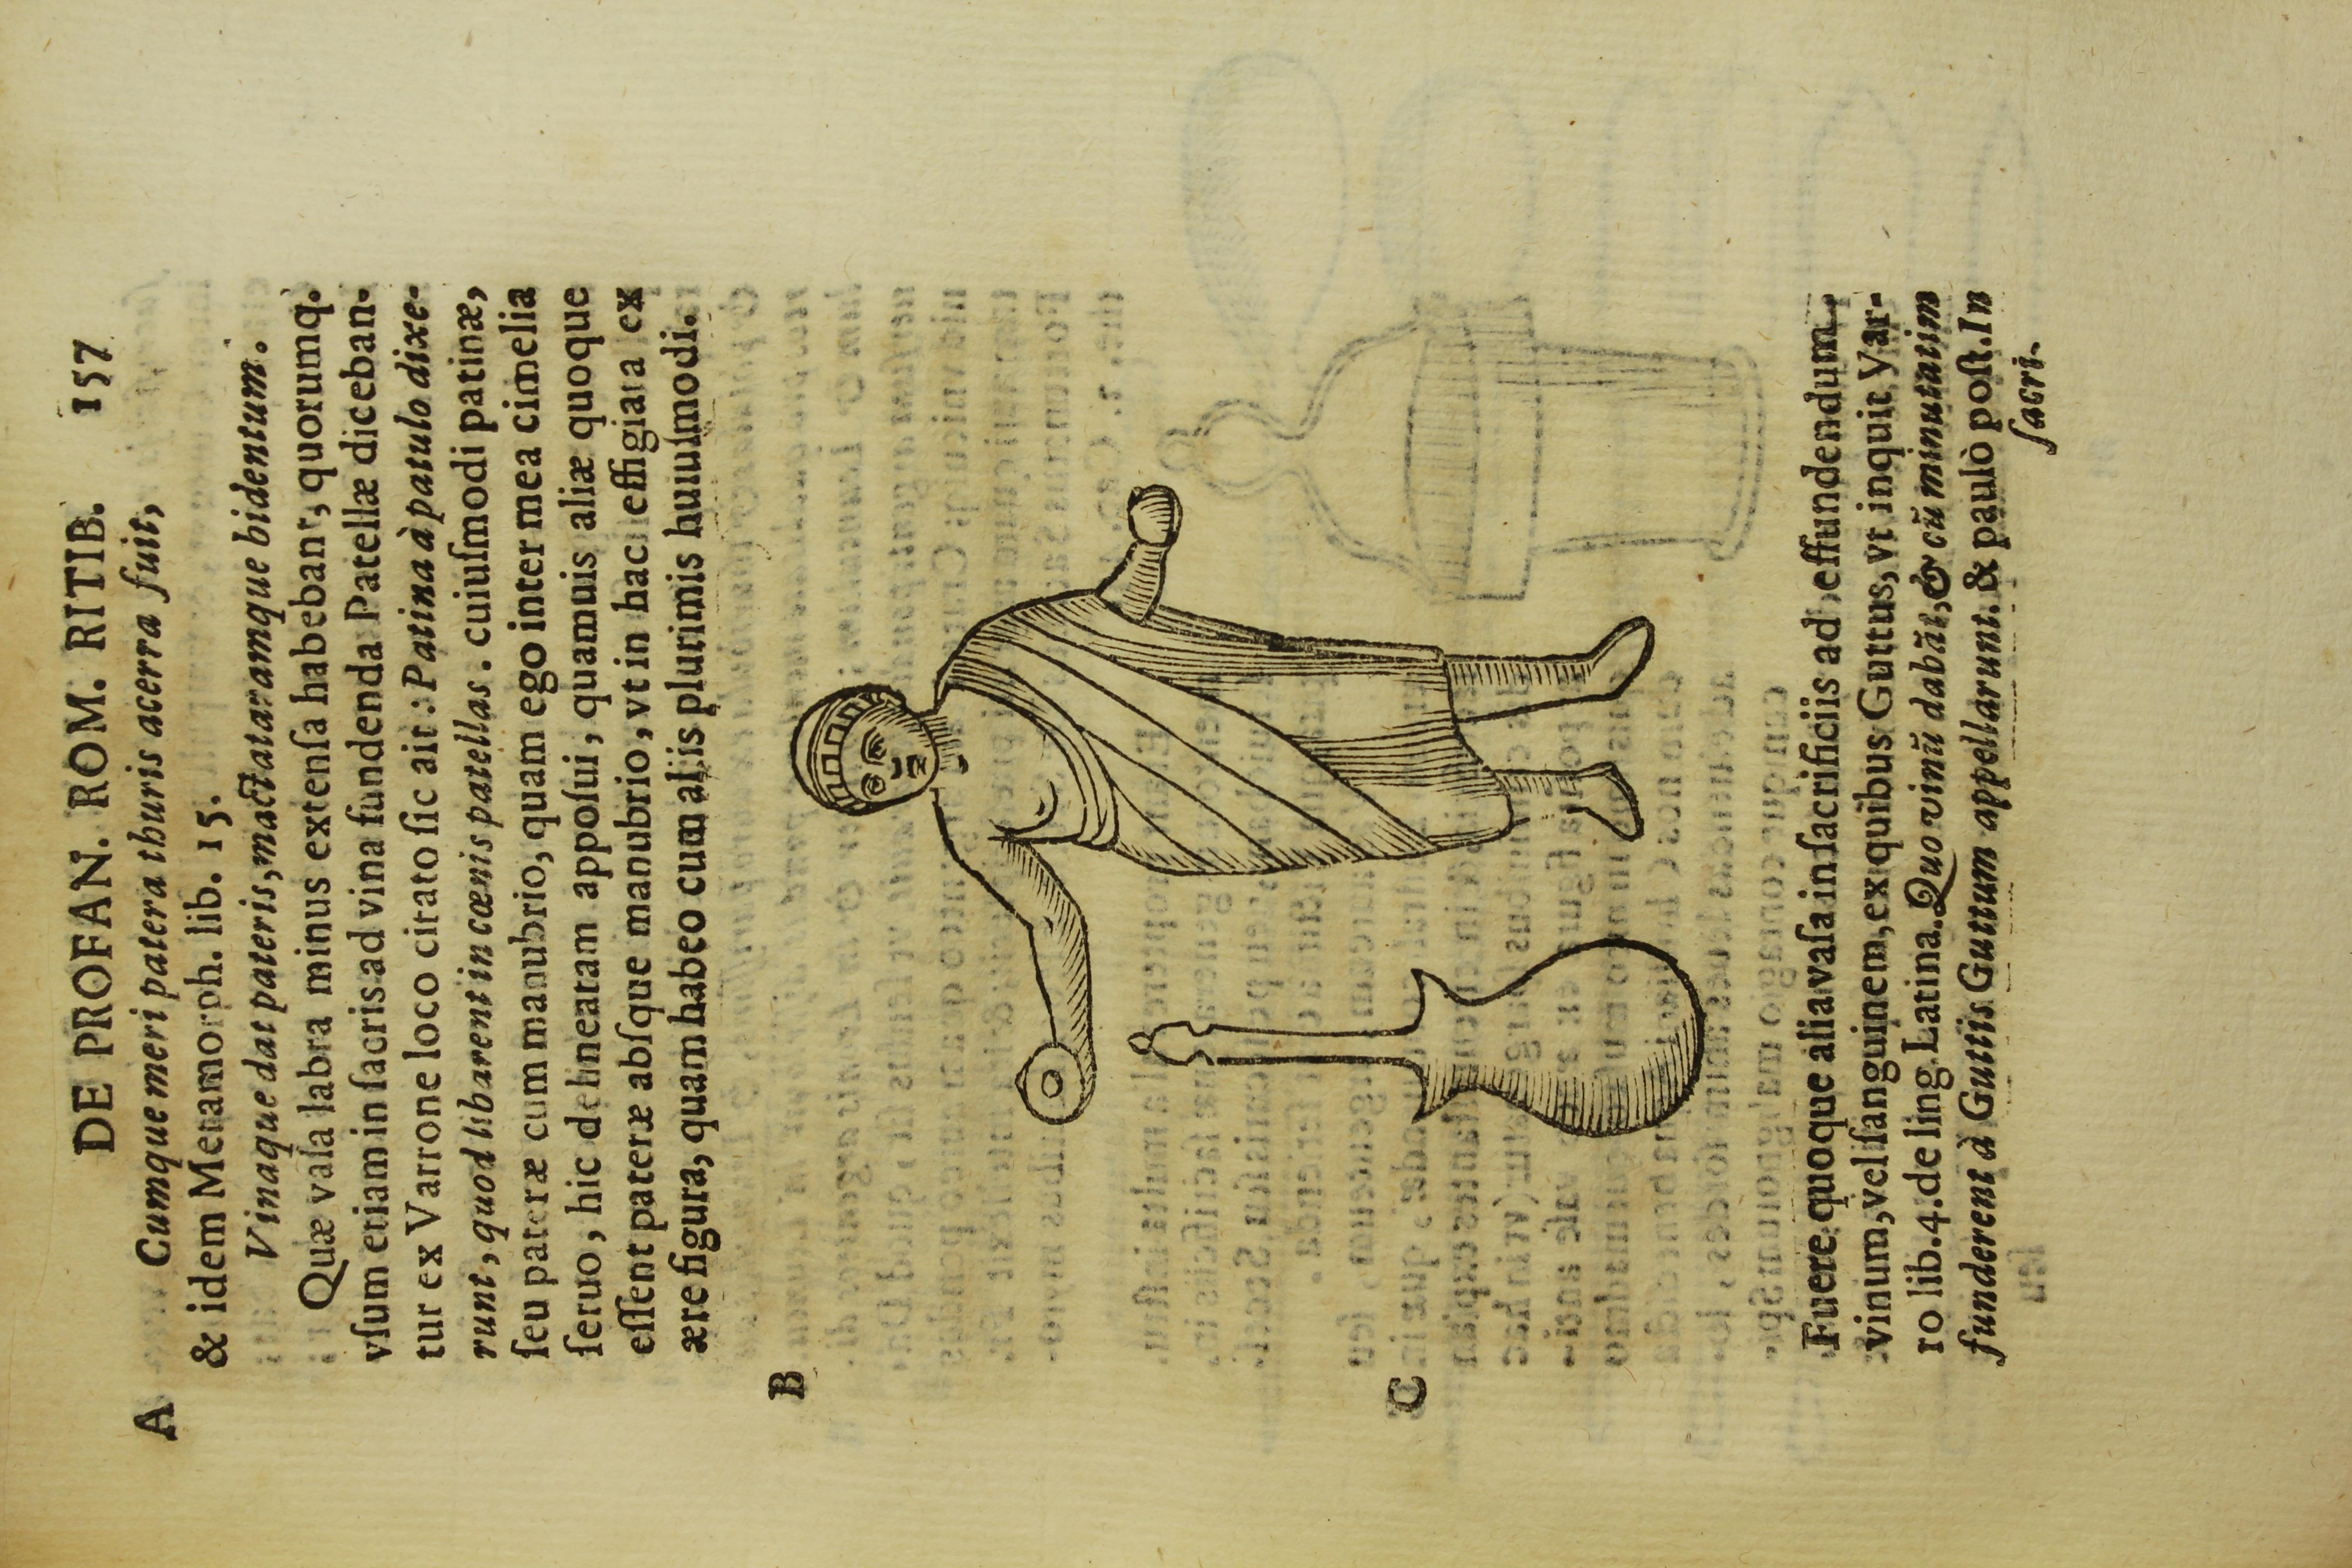 DE PROFAN. ROM. RITIB. 157
A Cumque meri patera thuris acerra fuit,
& idem Metamorph. lib. 15.
Vinaque dat pateris, mactataramque bidentum.
Quæ vaſa labra minus extenſa habebant, quorumq.
vſum etiam in ſacris ad vina fundenda Patellæ diceban-
tur ex Varrone loco citato ſic ait : Patina à patulo dixe-
runt, quod libarent in cœnis patellas. cuiuſmodi patinæ,
ſeu pateræ cum manubrio, quam ego inter mea cimelia
ſeruo, hic delineatam appoſui, quamuis aliæ quoque
eſſent pateræ abſque manubrio, vt in hac effigiata ex
ære figura, quam habeo cum aliis plurimis huiuſmodi.
B
C
Fuere quoque alia vaſa in ſacrificiis ad effundendum
vinum, vel ſanguinem, ex quibus Guttus, vt inquit Var-
ro lib. 4. de ling. Latina. Quo vinũ dabãt, & cũ minutatim
funderent à Guttis Guttum appellarunt. & paulò poſt. In
ſacri-